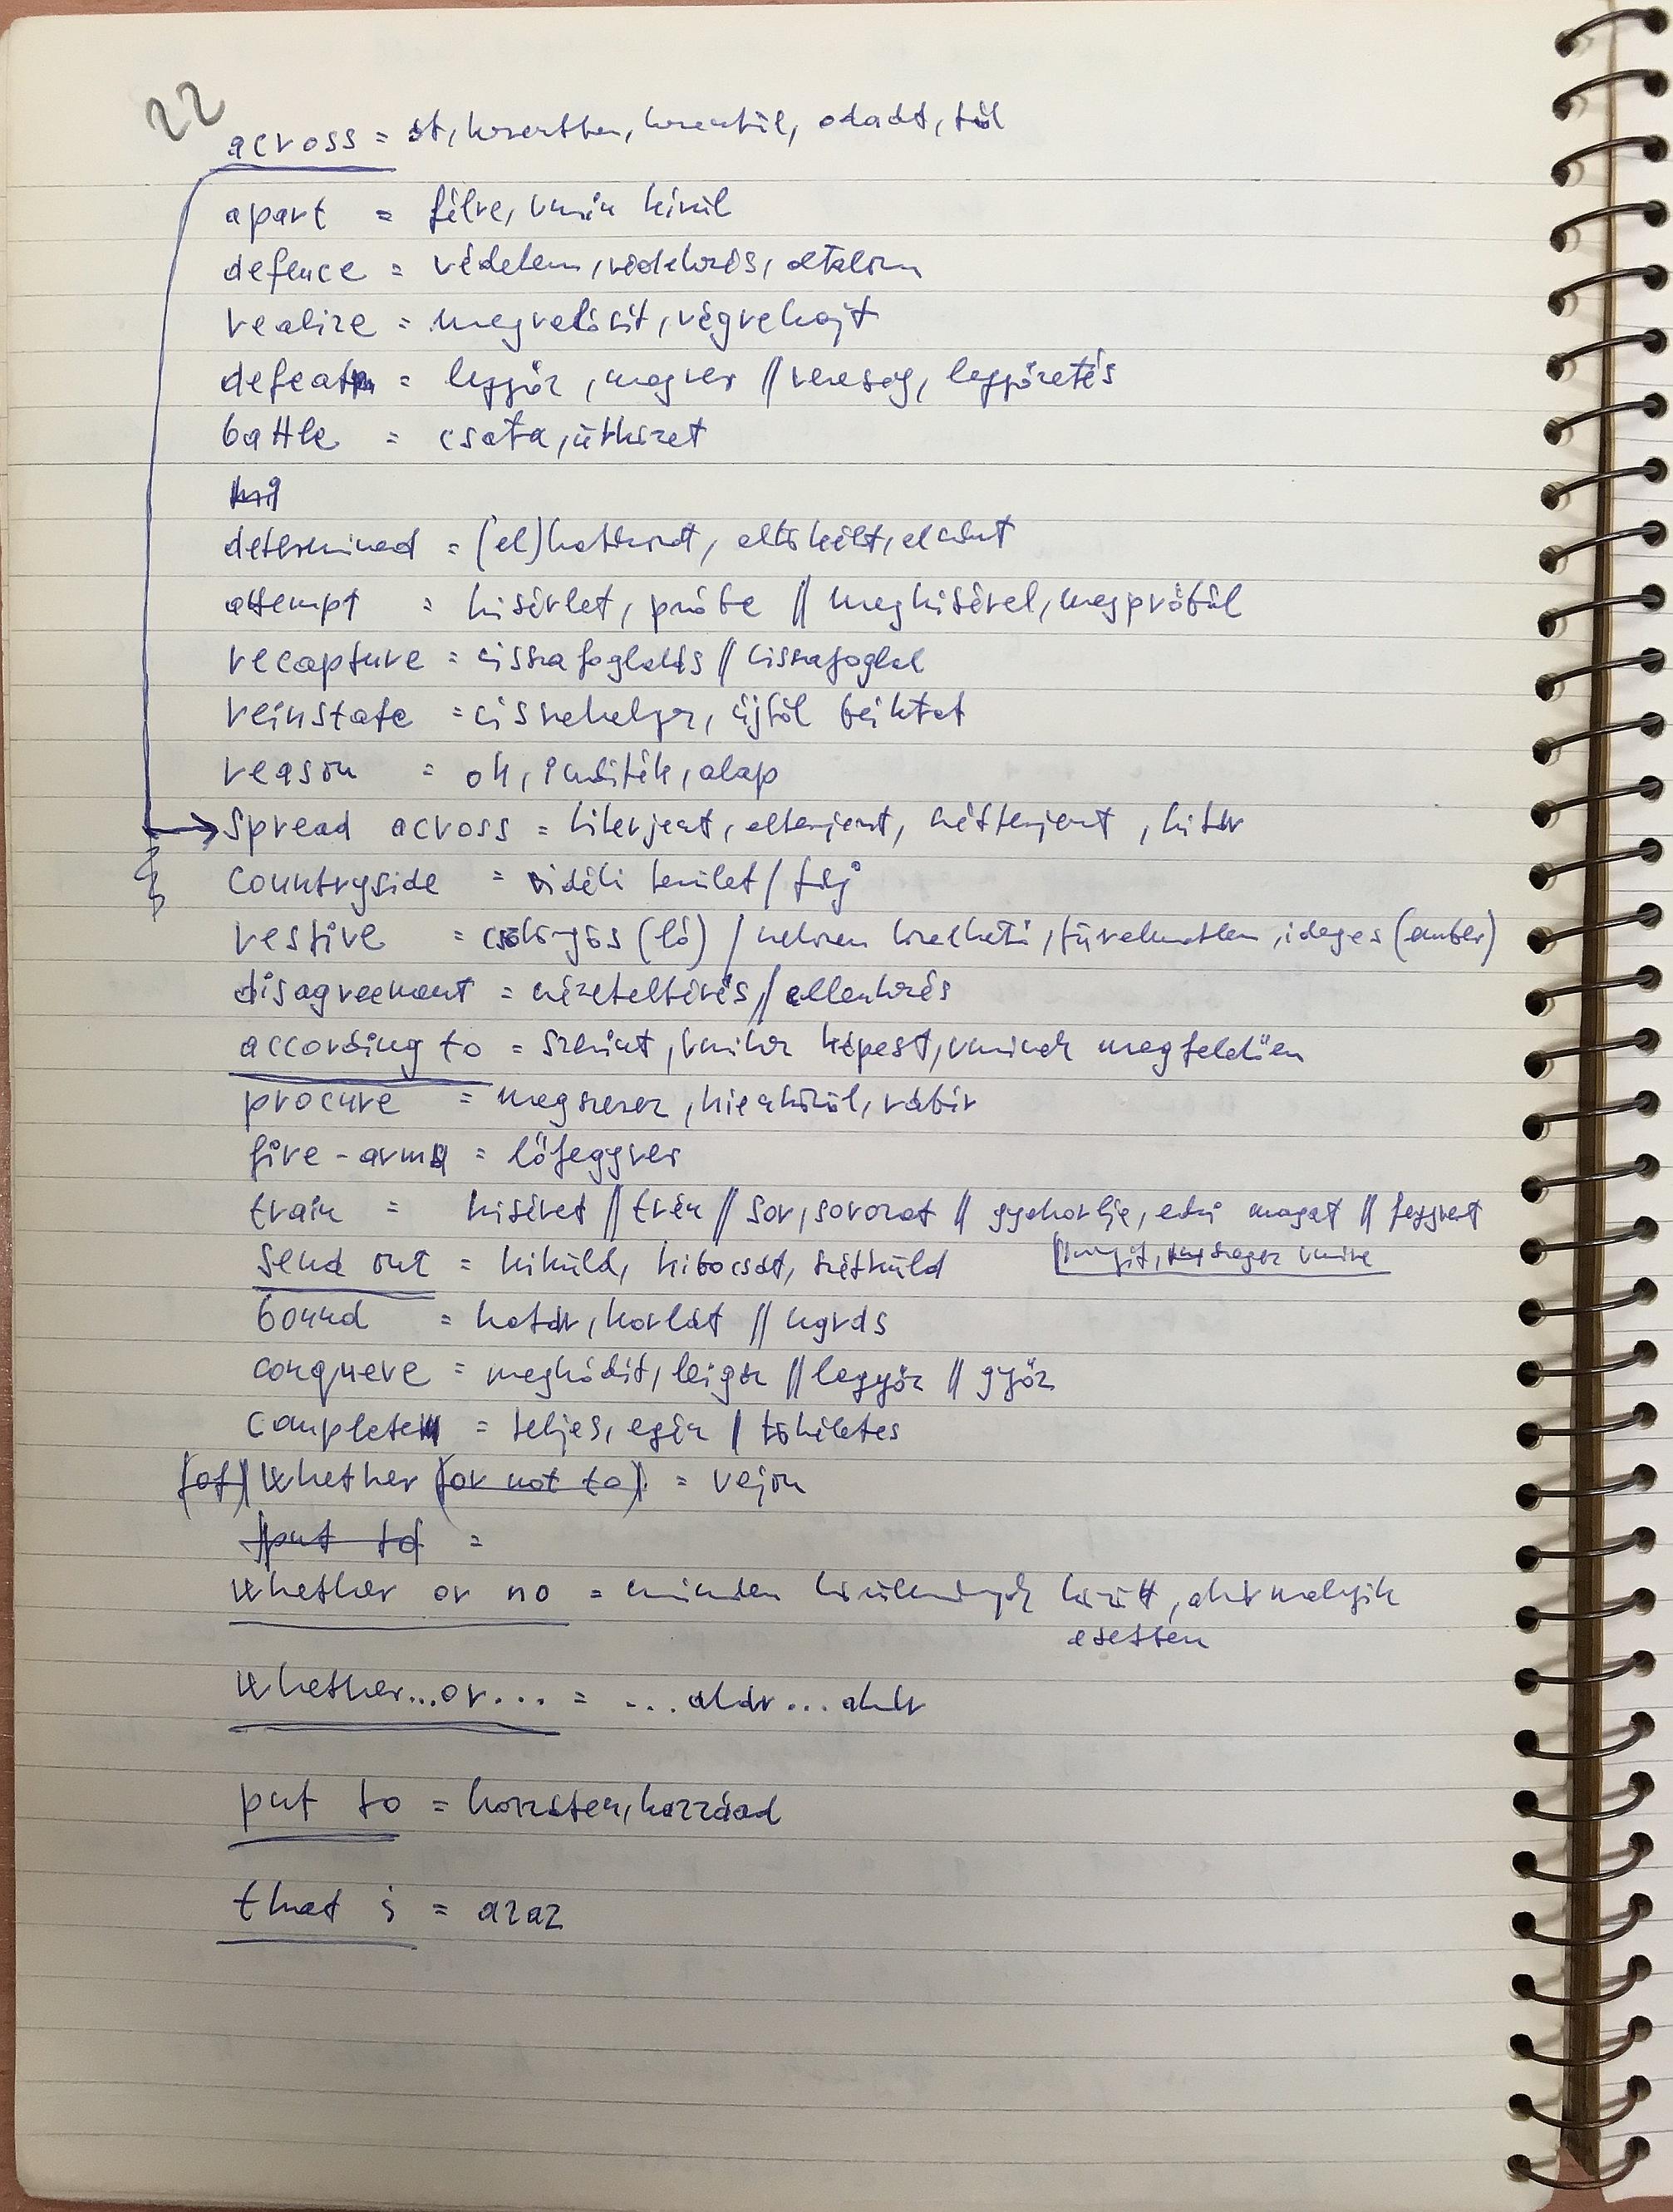 22
across = át, keresztben, keresztül, odaát, túl
apart = félre, vmin kivül
defence = védelem, védekezés, oltalom
realize = megvalósít, végrehajt
defeat = legyőz, megver // vereség, legyőzetés
battle = csata, ütközet
determined = (el)határozott, eltökélt, elszánt
attempt = kisérlet, próba // megkisérel, megpróbál
recapture = visszafoglalás // visszafoglal
reinstate = visszahelyez, újból beiktat
reason = ok, inditék, alap
Spread across = kiterjeszt, elterjeszt, szétterjeszt, kitár
Countryside = vidéki terület / táj
restive = csökönyös (ló) / nehezen kezelhető, türelmetlen, ideges (ember)
disagreement = nézeteltérés // ellenkezés
according to = szerint, vmihez képest, vminek megfelelően
procure = megszerez, kieszközöl, rábír
fire-arm = lőfegyver
train = kiséret // trén // sor, sorozat // gyakorolja, edzi magát // fegyvert
irányít, szegez vmire
send out = kiküld, kibocsát, szétküld
bound = határ, korlát // ugrás
conquere = meghódít, leigáz // legyőz // győz
complete = teljes, egész / tökéletes
(of) Whether (or not to) = vajon
put to =
Whether or no = minden körülmények között, akármelyik
esetben
Whether...or... = ...akár...akár
put to = hozzátesz, hozzáad
that is = azaz